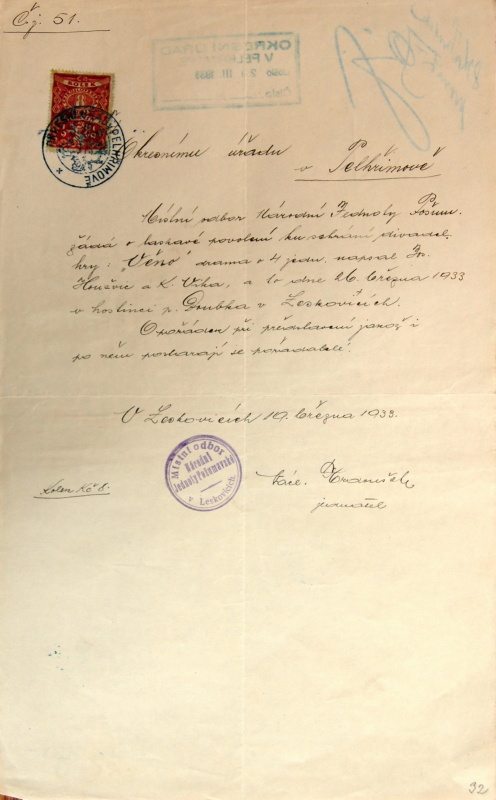 Čj. 51.
OKRESNÍ ÚŘAD
V PELHŘIMOVĚ
KOLEK
Okresnímu úřadu
v Pelhřimově
Místní odbor Národní Jednoty Pošum.
žádá o laskavé povolení ku sehrání divadel.
hry: "Věno" drama o 4 jedn. napsal
a K. Vika, a to dne 26. března 1933
v hostinci p. Doubka v Leskovicích.
O pořádek při představení jakož i
po něm postarají se pořadatelé.
V Leskovicích 19. března 1933.
Místní odbor
Národní
Jednoty Pošumavské
v Leskovicích
Kolek Kč 8.
jednatel
92